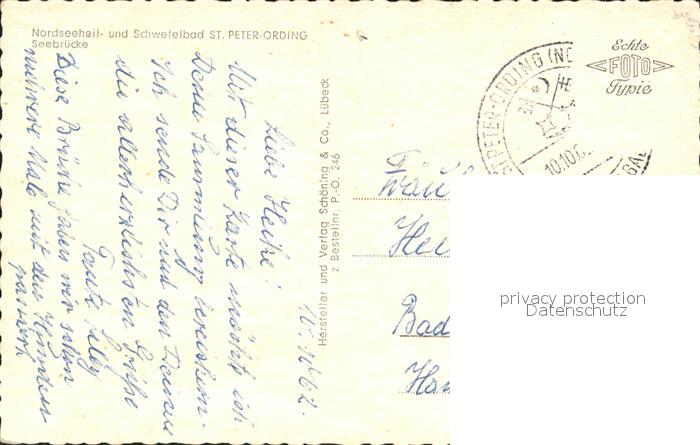 Nordseeheil- und Schwefelbad ST. PETER-ORDING
Seebrücke
Echte
FOTO
Typie
ST. PETER-ORDING (NO
10.10.6
10.10.62.
Liebe Heike!
Mit dieser Karte möchte ich
Deine Sammlung bereichern.
Ich sende Dir und den Deinen
die allerherzlichsten Grüße
Tante Lilly
Diese Brücke haben wir schon
mehrere Male mit den Hunden
passiert
Hersteller und Verlag Schöning & Co., Lübeck
z Bestellnr. P.-O. 246
Fräu
Hei
Bad
Han
privacy protection
Datenschutz